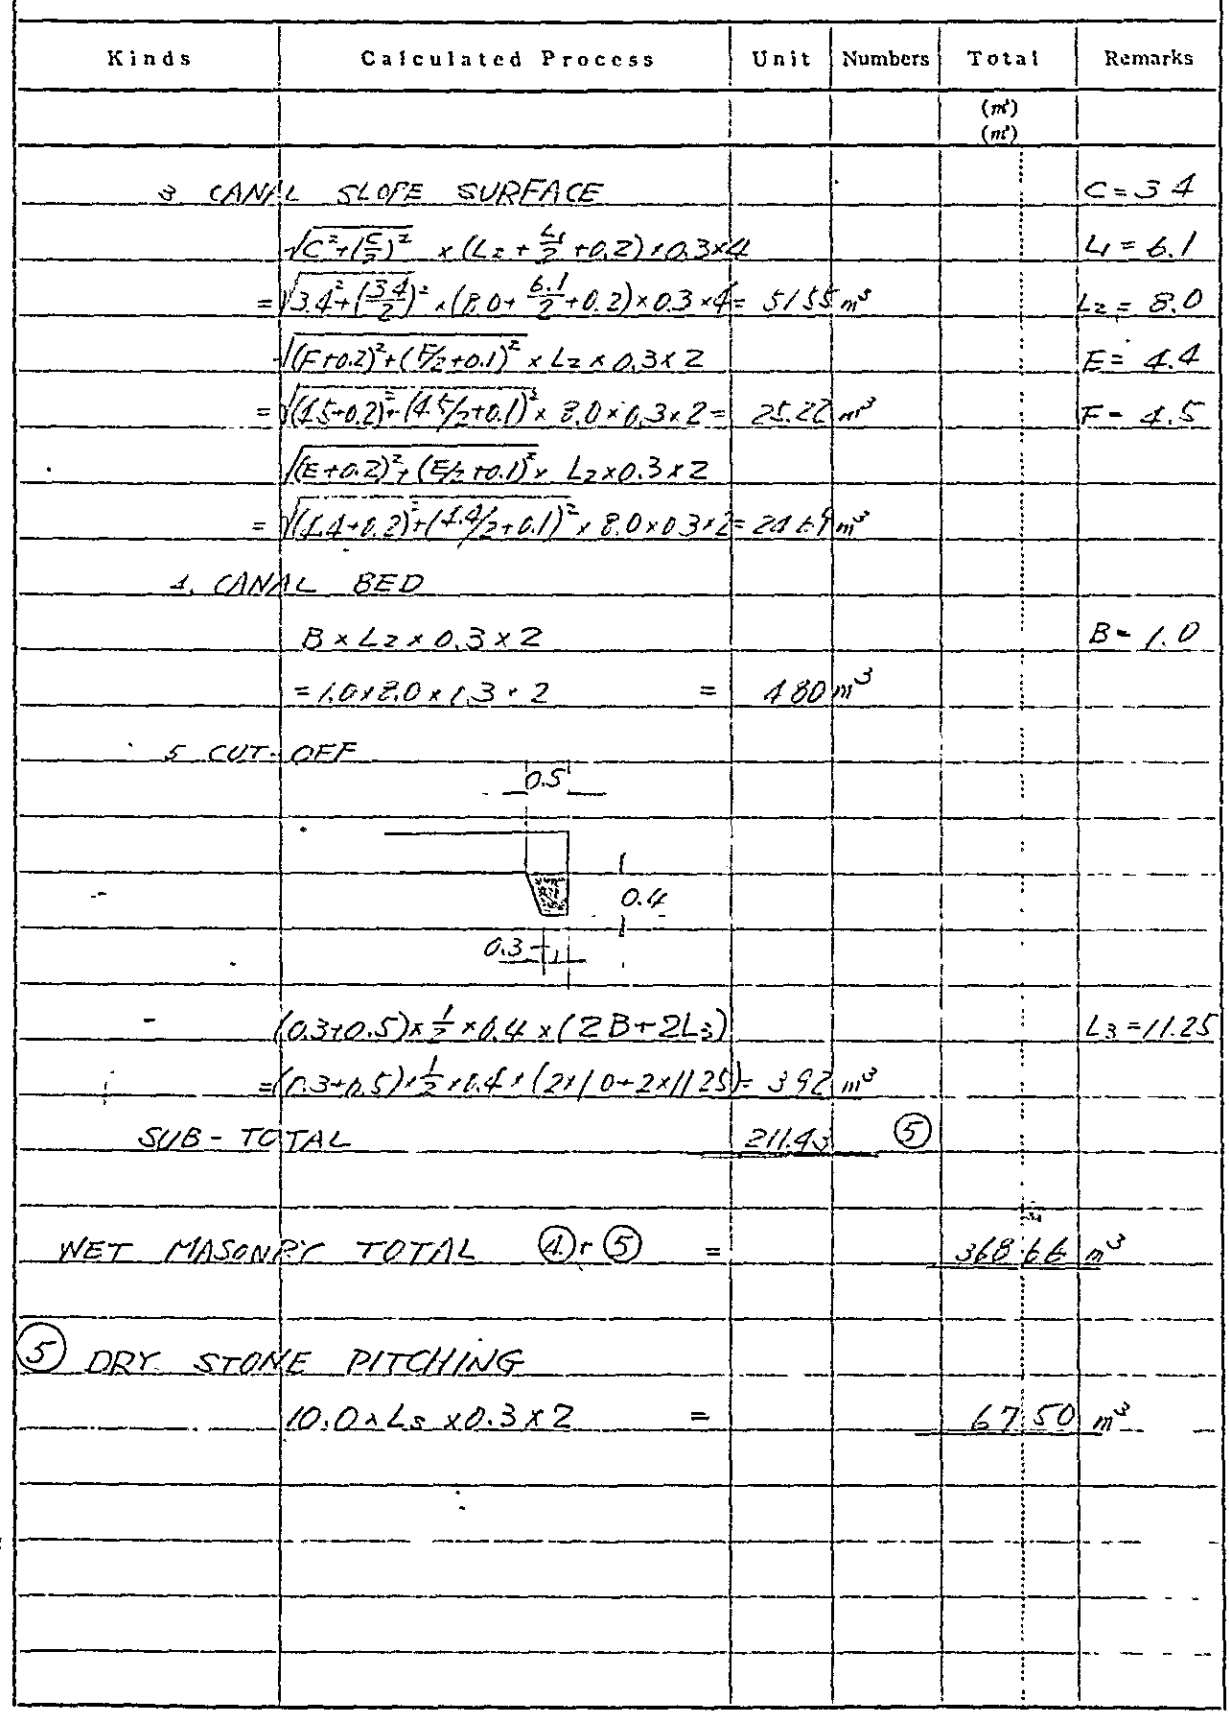 Kinds Calculated Process Unit Numbers Total Remarks
(m³)
(m³)
3 CANAL SLOPE SURFACE C=3.4
√C²+(C/2)² × (L₂ + L₁/2 +0.2)×0.3×4 L₁ = 6.1
=√3.4²+(3.4/2)² ×(8.0+ 6.1/2 +0.2)×0.3×4= 51.55 m³ L₂ = 8.0
√(F+0.2)²+(F/2+0.1)² × L₂ × 0.3×2 E= 4.4
=√(4.5+0.2)²+(4.5/2+0.1)² × 8.0×0.3×2= 25.22 m³ F= 4.5
√(E+0.2)²+(E/2+0.1)² × L₂×0.3×2
=√(4.4+0.2)²+(4.4/2+0.1)² × 8.0×0.3×2= 24.69 m³
4. CANAL BED
B×L₂×0.3×2 B= 1.0
=1.0×8.0×0.3×2 = 4.80 m³
5 CUT-OFF
0.5
0.4
0.3
(0.3+0.5)×1/2×0.4×(2B+2L₃) L₃=11.25
=(0.3+0.5)×1/2×0.4×(2×1.0+2×11.25)= 3.92 m³
SUB-TOTAL 211.43 ⑤
WET MASONRY TOTAL ④+⑤ = 368.66 m³
⑤ DRY STONE PITCHING
10.0×L₃×0.3×2 = 67.50 m³